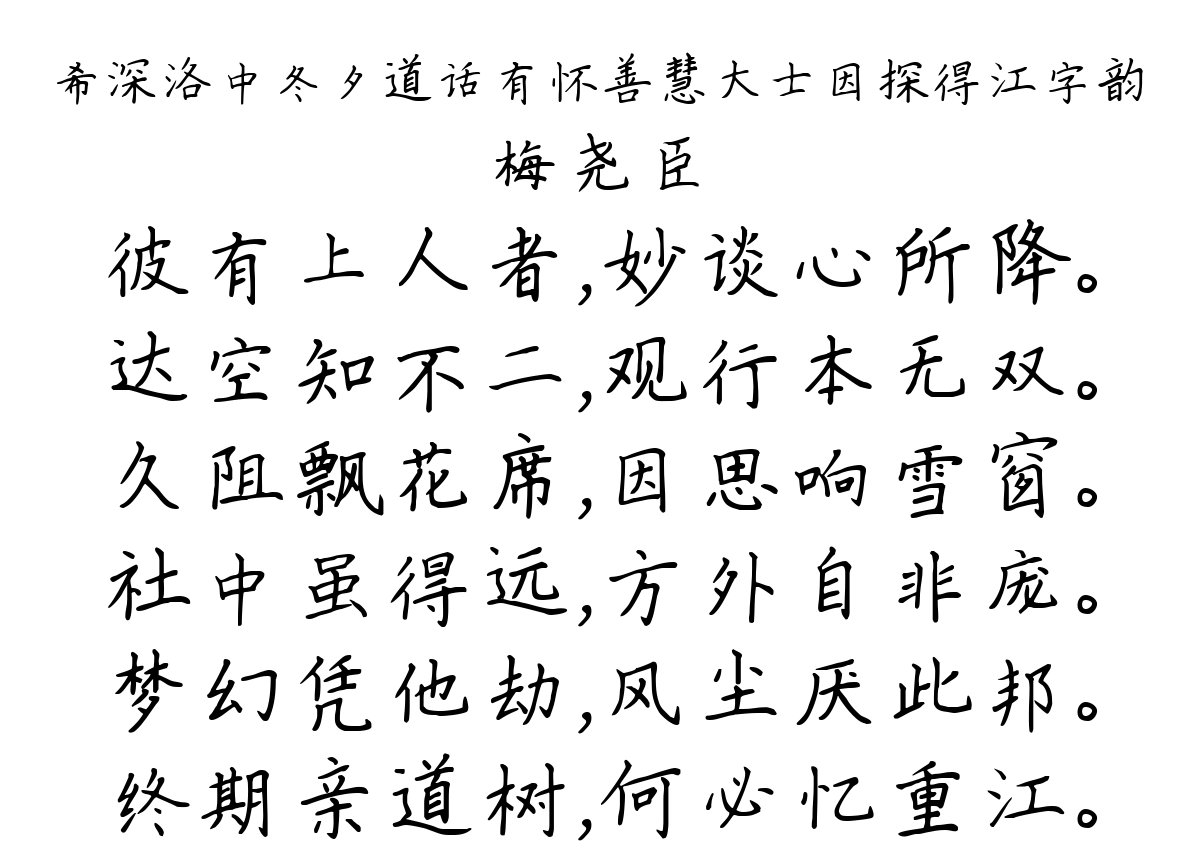 希深洛中冬夕道话有怀善慧大士因探得江字韵
梅尧臣
彼有上人者,妙谈心所降。
达空知不二,观行本无双。
久阻飘花席,因思响雪窗。
社中虽得远,方外自非庞。
梦幻凭他劫,风尘厌此邦。
终期亲道树,何必忆重江。